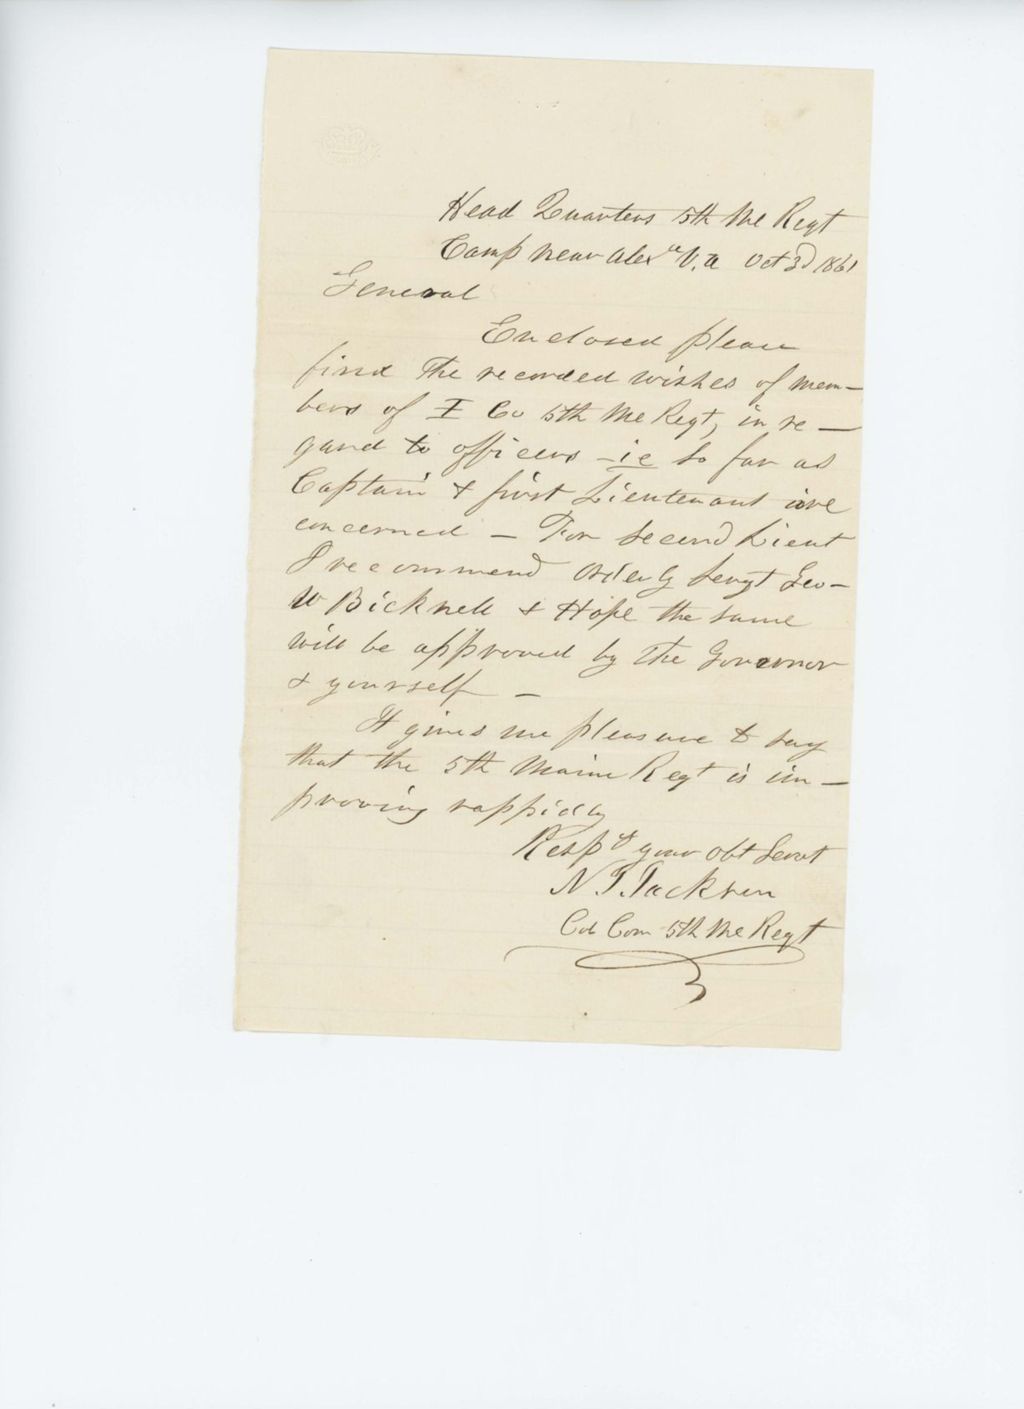 Head Quarters 5th Me Regt
Camp near Alexa V.a Oct 3d 1861
General
Enclosed please
find the recorded wishes of mem-
bers of I Co 5th Me Regt, in re-
gard to officers - ie so far as
Captain & first Lieutenant are
concerned - For Second Lieut
I recommend Orderly Sergt Geo-
W Bicknell & Hope the same
will be approved by the Governor
& yourself -
It gives me pleasure to say
that the 5th Maine Regt is im-
proving rappidly
Respy your obt Servt
N. J. Jackson
Col Com 5th Me Regt